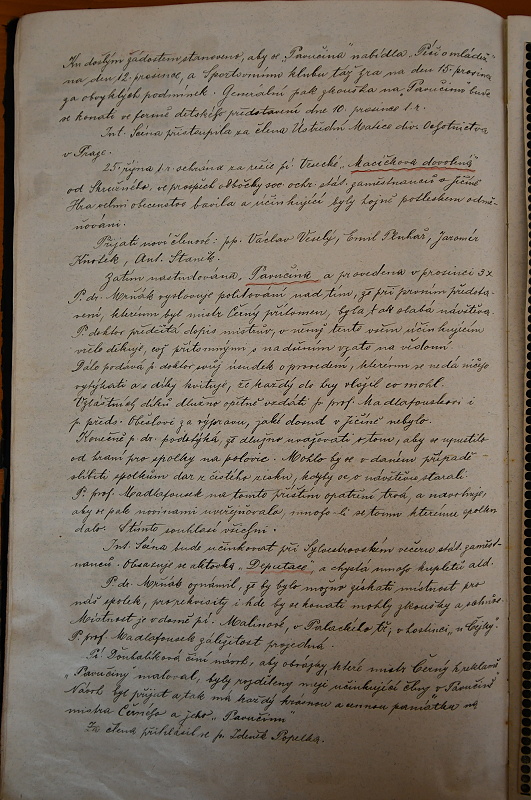 Ku došlým žádostem stanoveno, aby se "Pavučina" nabídla "Péči o mládež"
na den 12. prosince, a Sportovnímu klubu táž hra na den 15. prosince
za obvyklých podmínek. Generální pak zkouška na "Pavučinu" bude
se konati ve formě dětského představení dne 10. prosince t.r.
Int. Scéna přistoupila za člena Ústřední Matice div. Ochotnictva
v Praze.
25. října t.r. sehrána za režie pí Veselé "Macičkova dovolená"
od Skružného, ve prospěch odbočky soc. ochr. stát. zaměstnanců v Jičíně
Hra velmi obecenstvo bavila a účinkující byly hojně potleskem odmě-
ňováni.
Přijati noví členové: pp. Václav Veselý, Emil Penhaš, Jaromír
Knotek, Ant. Staněk.
Zatím nastudována "Pavučina" a provedena v prosinci 3x
P. dr. Mrňák vyslovuje politování nad tím, že při prvním předsta-
vení, kterému byl mistr Černý přítomen, byla tak slabá návštěva.
P. doktor předčítá dopis mistrův, v němž tento všem účinkujícím
vřele děkuje, což přítomnými s nadšením vzato na vědomí.
Dále podává p. doktor svůj úsudek o provedení, kterému se nedá ničeho
vytýkati a s díky kvituje, že každý do hry vložil co mohl.
Zvláštních díků dlužno opětně vzdáti p. prof. Madlafouskovi i
p. předs. za výpravu, jaké dosud v Jičíně nebylo.
Konečně p. dr. podotýká, že dlužno uvažovati o tom, aby se upustilo
od hraní pro spolky na polovic. Mohlo by se v daném případě
slíbiti spolkům dar z čistého zisku, kdyby se o návštěvu starali.
P. prof. Madlafousek na tomto příštím opatření trvá, a navrhuje,
aby se pak novinami uveřejňovalo, mnoho-li se tomu kterému spolku
dalo. S tímto souhlasí všichni.
Int. Scéna bude účinkovat při Sylvestrovském večeru stát. zaměst-
nanců. Obsazuje se aktovka "Deputace" a chystá mnoho kupletů atd.
P. dr. Mrňák oznámil, že by bylo možno získati místnost pro
náš spolek, pro rekvisity i kde by se konati mohly zkoušky a schůze.
Místnost je v domě pí. Malinové, v Palackého tř., v hostinci "u Čejky".
P. prof. Madlafousek záležitost projedná.
Pí. Douhalíková činí návrh, aby obrázky, které mistr Černý k reklamě
"Pavučiny" maloval, byly rozděleny mezi účinkující členy v "Pavučině"
Návrh byl přijat a tak má každý krásnou a cennou památku na
mistra Černého a jeho "Pavučinu"
Za člena přihlásil se p. Zdeněk Popelka.